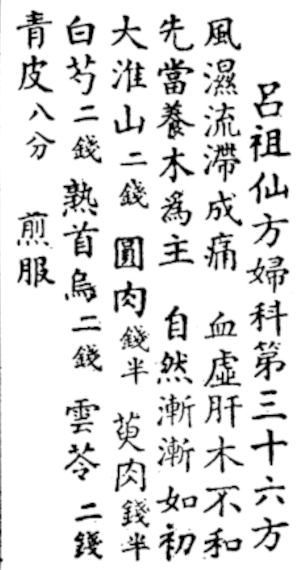 呂祖仙方婦科第三十六方
風濕流滯成痛 血虛肝木不和
先當養木為主 自然漸漸如初
大淮山二錢 圓肉錢半 萸肉錢半
白芍二錢 熟首烏二錢 雲苓二錢
青皮八分 煎服